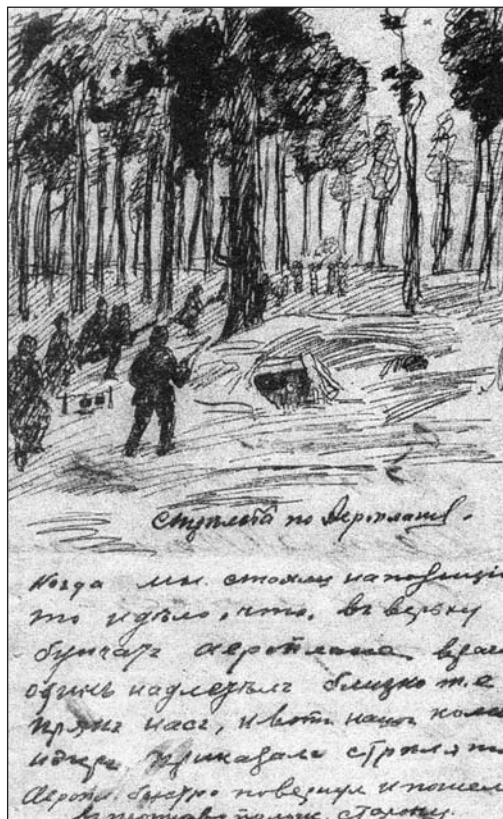 стрѣльба по Аероплану.
Когда мы стояли на позиціи
то и дѣло, что, въ верьху
бунчатъ аеропланы
одинъ надлетѣлъ близко
прямъ насъ, и вотъ нашъ кома
ндиръ приказалъ стрѣлять
Аеропл. быстро повернул и пошел
сторону.